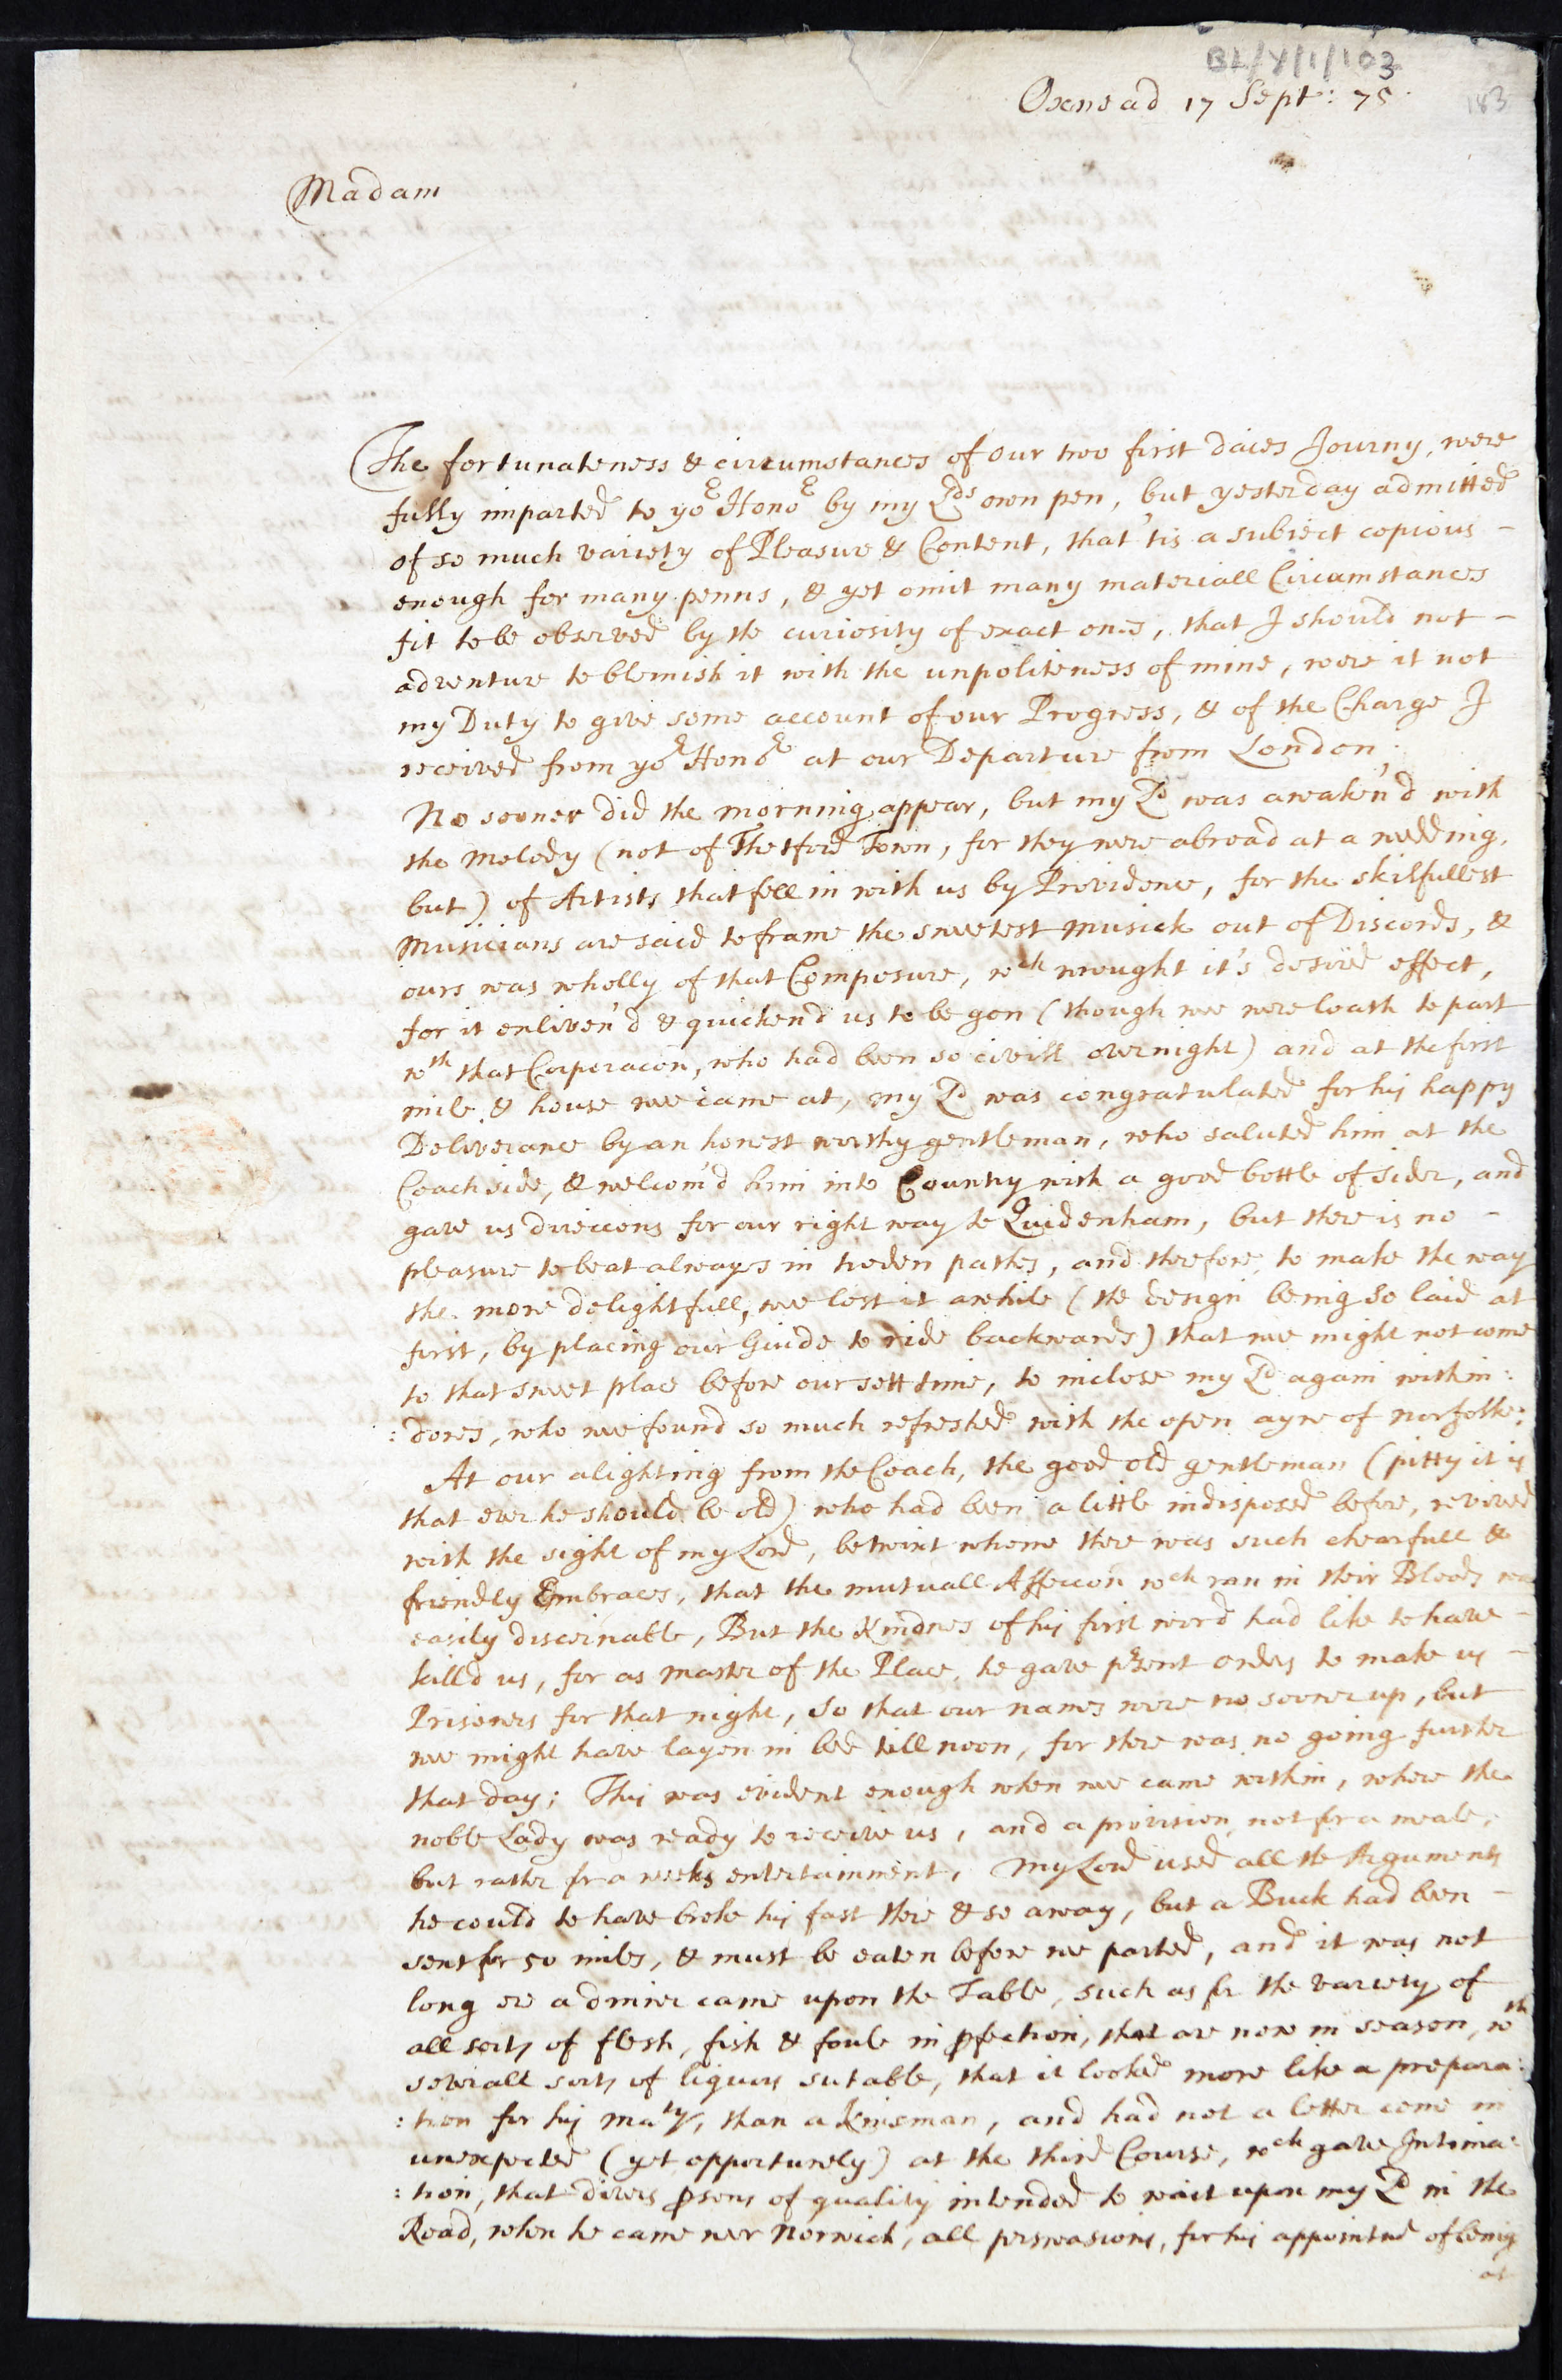 BL/Y/1/103
183
Oxnead 17 Sept: 75.
Madam
The fortunateness & circumstances of our two first daies Journy, were
fully imparted to yor Honor by my Lds own pen, but yesterday admitted
of so much variety of Pleasure & Content, that 'tis a subiect copious -
enough for many penns, & yet omit many materiall Circumstances
fit to be observed by the curiosity of exact ones, that I should not -
adventure to blemish it with the unpoliteness of mine, were it not
my Duty to give some account of our Progress, & of the Charge I
received from yor Honor at our Departure from London;
No sooner did the morning appear, but my Ld was awaken'd with
the Melody (not of Thetford Town, for they were abroad at a wedding,
but) of Artists that fell in with us by Providence, for the skilfullest
Musicians are said to frame the sweetest musick out of Discords, &
ours was wholly of that Composure, wch wrought it's desired effect,
for it enliven'd & quicken'd us to be gon (though wee were loath to part
wth that Corporacon, who had been so civill overnight) and at the first
mile & house wee came at, my Ld was congratulated for his happy
Deliverance by an honest worthy gentleman, who saluted him at the
Coach side, & welcom'd him into Country with a good bottle of sider, and
gave us direccons for our right way to Quidenham, but there is no -
pleasure to beat always in troden pathes, and therefore, to make the way
the more delightfull, wee lost it awhile (the design being so laid at
first, by placing our Guide to ride backwards) that wee might not come
to that sweet place before our sett time, to inclose my Ld again within:
:dores, who wee found so much refreshed with the open ayre of norfolke;
At our alighting from the Coach, the good old gentleman (pitty it is
that ever he should be old) who had been a little indisposed before, revived
with the sight of my Lord, betwixt whome there was such chearfull &
friendly Embraces, that the mutuall Affeccon wch ran in their Bloods was
easily discernable, But the Kindnes of his first word had like to have -
kill'd us, for as Master of the Place, he gave prsent orders to make us -
Prisoners for that night, so that our names were no sooner up, but
wee might have layen in bed till noon, for there was no going further
that day; This was evident enough when wee came within, where the
noble Lady was ready to receive us, and a provision, not for a meale,
but rather for a weeks entertainment, My Lord used all the Arguments
he could to have broke his fast there & so away, but a Buck had been -
sent for 50 miles, & must be eaten before wee parted, and it was not
long ere a dinner came upon the Table, such as for the variety of
all sorts of flesh, fish & foule in pfection, that are now in season, wth
severall sorts of liquors sutable, that it looked more like a prepara:
:tion for his Maty, than a Kinsman, and had not a letter come in
unexpected (yet opportunely) at the third Course, wch gave Intima:
:tion, that divers psons of quality intended to wait upon my Ld in the
Road, when he came neer Norwich, all perswasions, for his appointmt of being
at